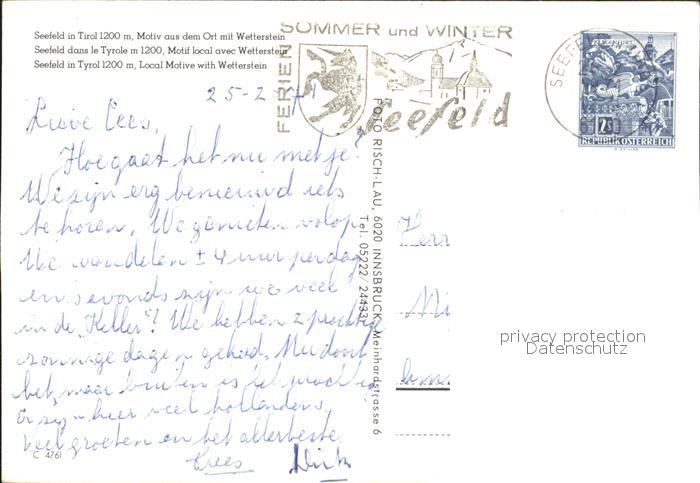 Seefeld in Tirol 1200 m, Motiv aus dem Ort mit Wetterstein
Seefeld dans le Tyrole m 1200, Motif local avec Wetterstein
Seefeld in Tyrol 1200 m, Local Motive with Wetterstein
SOMMER und WINTER
FERIEN
Seefeld
SEEFE
KLAGENFURT
2.50
REPUBLIK ÖSTERREICH
25-2 71
Lieve Cees,
Hoe gaat het nu met je?
We zijn erg benieuwd iets
te horen. We genieten volop
We wandelen ± 4 uur per dag
en 's avonds zijn we veel
in de "Keller"! We hebben 2 prachtige
zonnige dagen gehad. Nu dooit
het, maar buiten is het prachtig
Er zijn hier veel hollanders.
Veel groeten en het allerbeste
Trees Dirk
C 4761
FOTO RISCH-LAU, 6020 INNSBRUCK, Meinhardstrasse 6
Tel. 05222/24433
Herr
privacy protection
Datenschutz